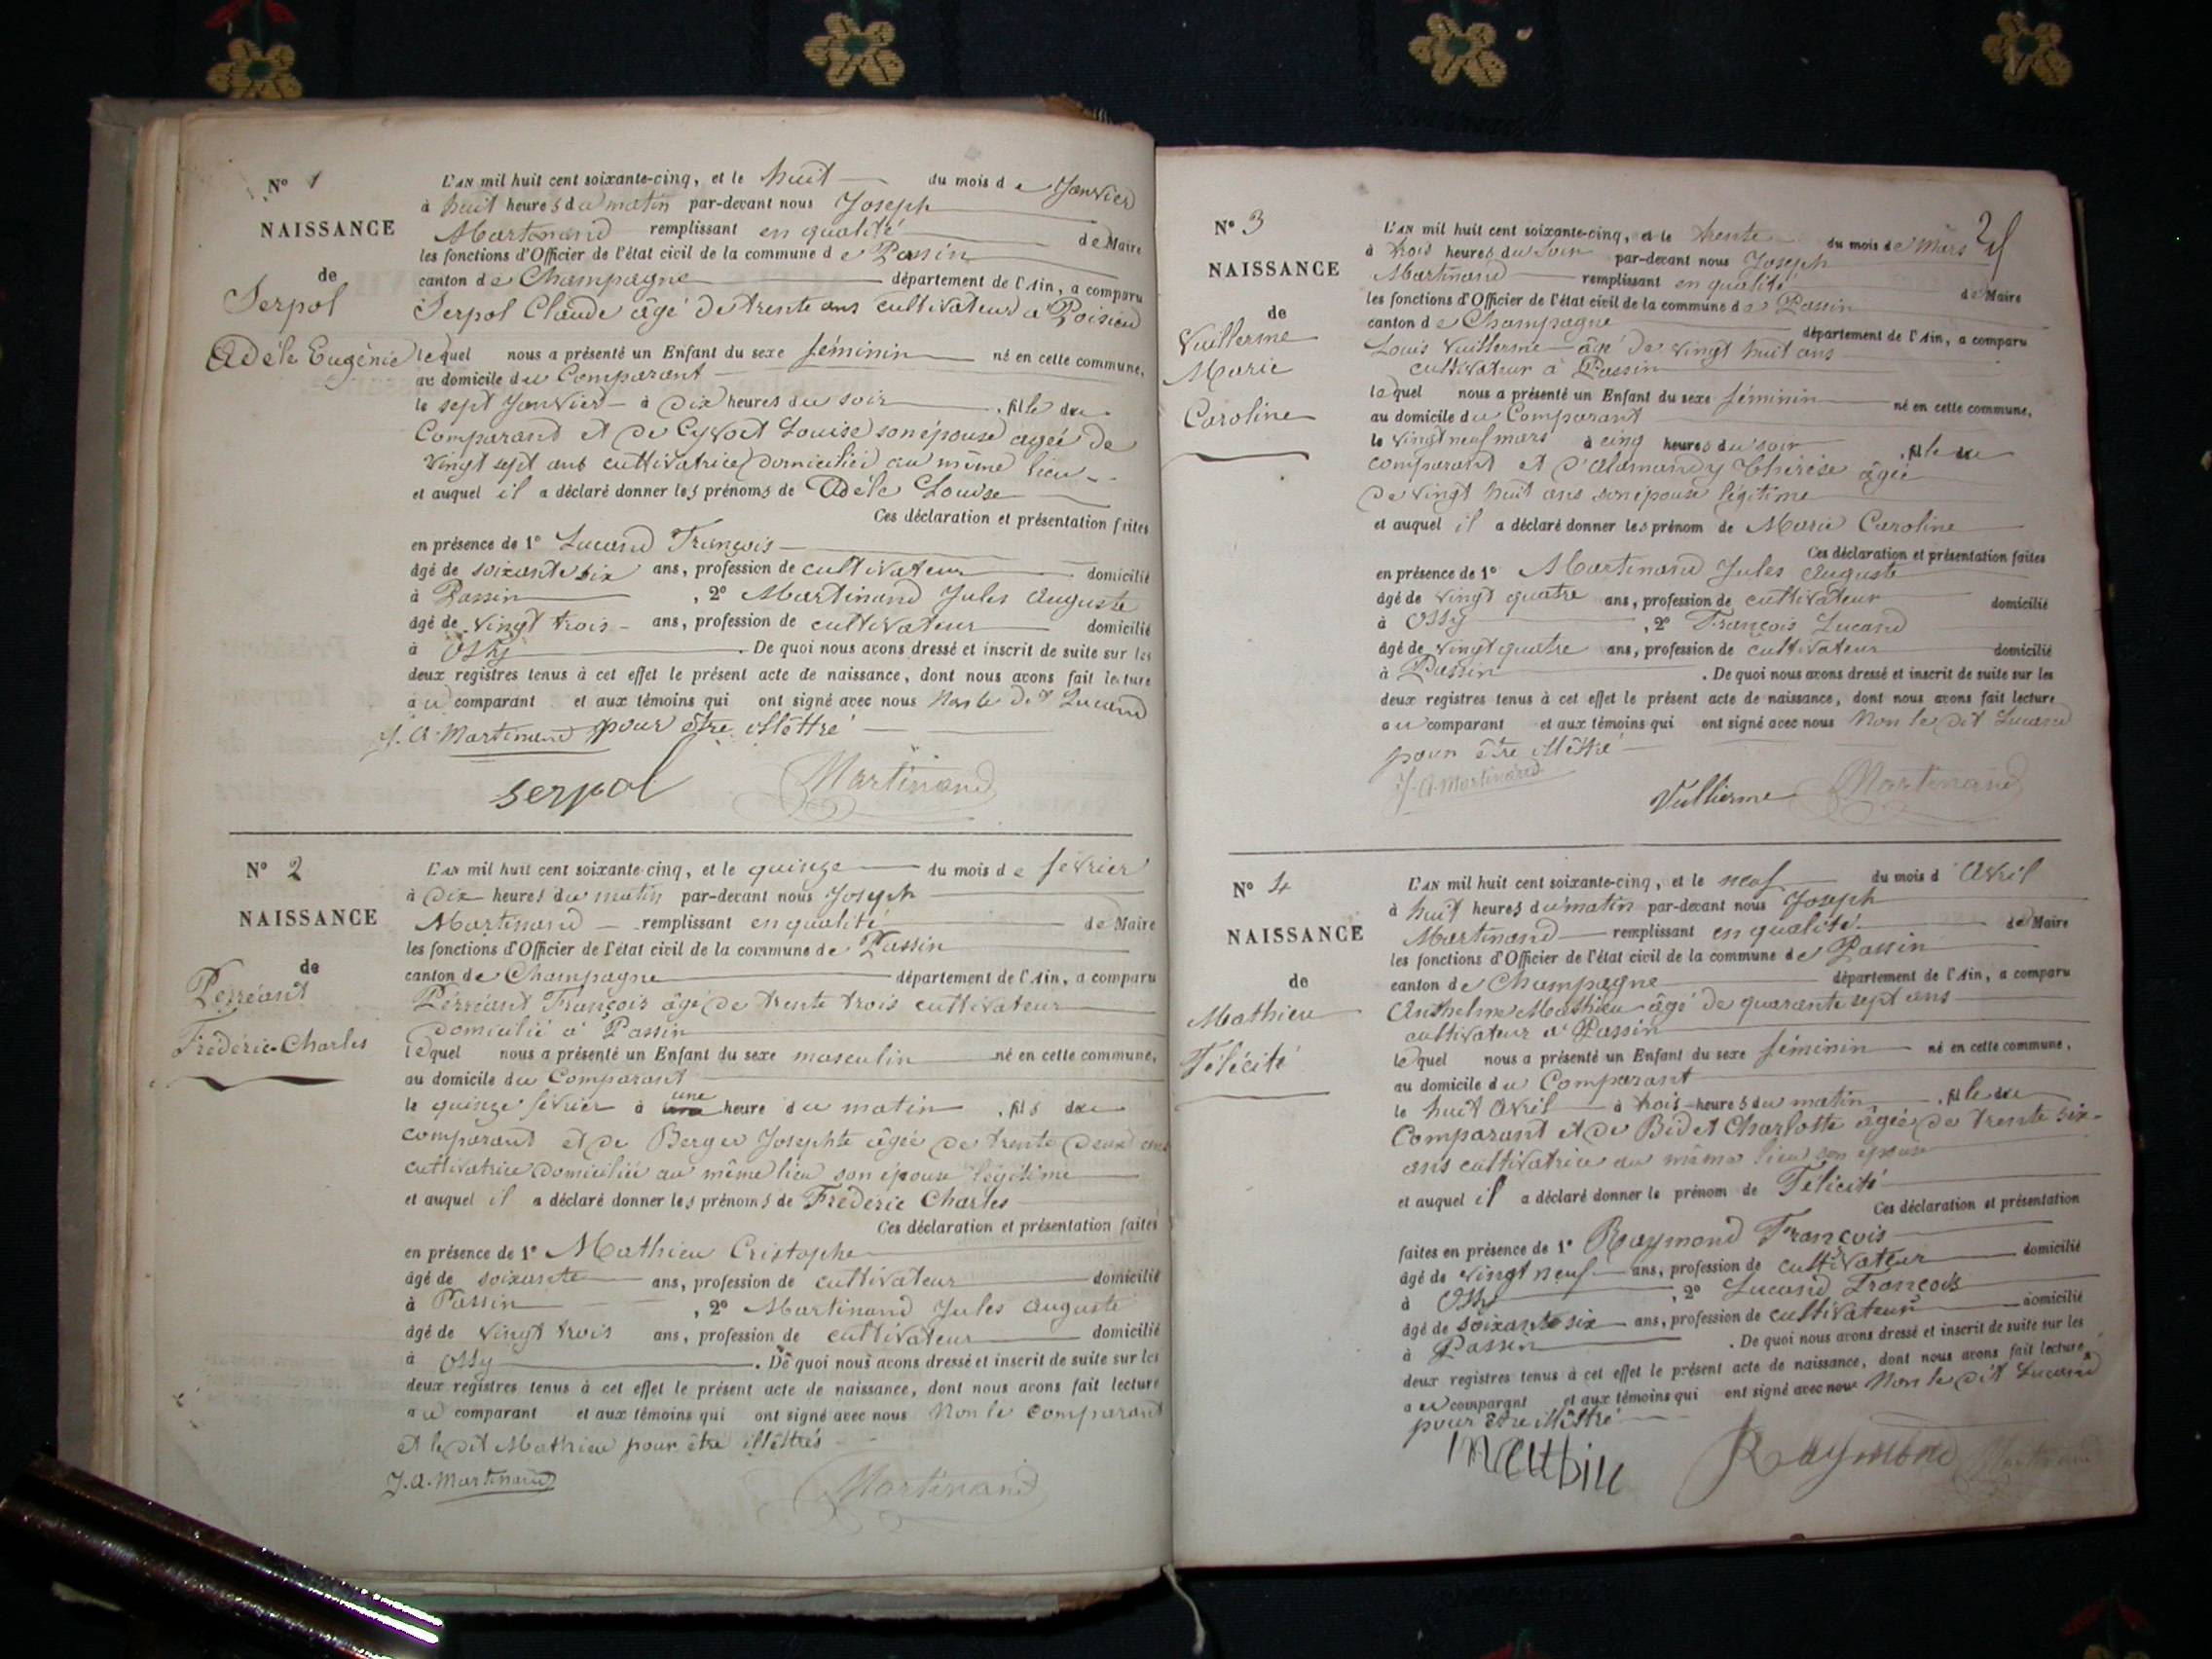 N° 1
NAISSANCE
de
Serpol
Adèle Eugénie
L'AN mil huit cent soixante-cinq, et le huit du mois de Janvier
à huit heures du matin par-devant nous Joseph
Martinand remplissant en qualité de Maire
les fonctions d'Officier de l'état civil de la commune de Passin
canton de Champagne département de l'Ain, a comparu
Serpol Claude âgé de trente ans cultivateur à Poisieu
lequel nous a présenté un Enfant du sexe féminin né en cette commune,
au domicile du Comparant
le sept Janvier à dix heures du soir, fille du
Comparant et de Cyvoct Louise son épouse agée de
vingt sept ans cultivatrice domicilié au même lieu
et auquel il a déclaré donner les prénoms de Adèle Louise
Ces déclaration et présentation faites
en présence de 1° Lucand François
âgé de soixante six ans, profession de cultivateur domicilié
à Passin, 2° Martinand Jules Auguste
âgé de vingt trois ans, profession de cultivateur domicilié
à Ossy. De quoi nous avons dressé et inscrit de suite sur les
deux registres tenus à cet effet le présent acte de naissance, dont nous avons fait lecture
au comparant et aux témoins qui ont signé avec nous Non le dit Lucand
J. A. Martinand pour être illettré
serpol Martinand
N° 2
NAISSANCE
de
Perréant
Fréderic-Charles
L'AN mil huit cent soixante-cinq, et le quinze du mois de fevrier
à dix heures du matin par-devant nous Joseph
Martinand remplissant en qualité de Maire
les fonctions d'Officier de l'état civil de la commune de Passin
canton de Champagne département de l'Ain, a comparu
Perréant François âgé de trente trois cultivateur
domicilié à Passin
lequel nous a présenté un Enfant du sexe masculin né en cette commune,
au domicile du Comparant
le quinze février à une heure du matin, fils du
comparant et de Berger Josephte âgée de trente deux ans
cultivatrice domiciliée au même lieu son épouse légitime
et auquel il a déclaré donner les prénoms de Fréderic Charles
Ces déclaration et présentation faites
en présence de 1° Mathieu Cristophe
âgé de soixante ans, profession de cultivateur domicilié
à Passin, 2° Martinand Jules Auguste
âgé de vingt trois ans, profession de cultivateur domicilié
à Ossy. De quoi nous avons dressé et inscrit de suite sur les
deux registres tenus à cet effet le présent acte de naissance, dont nous avons fait lecture
au comparant et aux témoins qui ont signé avec nous Non le comparant
et le dit Mathieu pour être illettrés
J. A. Martinand Martinand
N° 3
NAISSANCE
de
Vuillerme
Marie
Caroline
L'AN mil huit cent soixante-cinq, et le trente du mois de Mars
à trois heures du soir par-devant nous Joseph
Martinand remplissant en qualité de Maire
les fonctions d'Officier de l'état civil de la commune de Passin
canton de Champagne département de l'Ain, a comparu
Louis Vuillerme âgé de vingt huit ans
cultivateur à Passin
lequel nous a présenté un Enfant du sexe féminin né en cette commune,
au domicile du Comparant
le vingt neuf mars à cinq heures du soir, fille du
comparant et d'Alamandy Thérèse âgée
de vingt huit ans son épouse légitime
et auquel il a déclaré donner les prénom de Marie Caroline
Ces déclaration et présentation faites
en présence de 1° Martinand Jules Auguste
âgé de vingt quatre ans, profession de cultivateur domicilié
à Ossy, 2° François Lucand
âgé de vingt quatre ans, profession de cultivateur domicilié
à Passin. De quoi nous avons dressé et inscrit de suite sur les
deux registres tenus à cet effet le présent acte de naissance, dont nous avons fait lecture
au comparant et aux témoins qui ont signé avec nous Non le dit Lucand
pour être illettré
J. A. Martinand
Vullierme Martinand
N° 4
NAISSANCE
de
Mathieu
Félicité
L'AN mil huit cent soixante-cinq, et le neuf du mois d'Avril
à huit heures du matin par-devant nous Joseph
Martinand remplissant en qualité de Maire
les fonctions d'Officier de l'état civil de la commune de Passin
canton de Champagne département de l'Ain, a comparu
Anthelme Mathieu âgé de quarante sept ans
cultivateur à Passin
lequel nous a présenté un Enfant du sexe féminin né en cette commune,
au domicile du Comparant
le huit Avril à trois heures du matin, fille du
Comparant et de Bidet Charlotte âgée de trente six
ans cultivatrice au même lieu son épouse
et auquel il a déclaré donner le prénom de Félicité
Ces déclaration et présentation
faites en présence de 1° Raymond François
âgé de vingt neuf ans, profession de cultivateur domicilié
à Ossy, 2° Lucand François
âgé de soixante six ans, profession de cultivateur domicilié
à Passin. De quoi nous avons dressé et inscrit de suite sur les
deux registres tenus à cet effet le présent acte de naissance, dont nous avons fait lecture
au comparant et aux témoins qui ont signé avec nous Non le dit Lucand
pour être illettré
Raymond Martinand